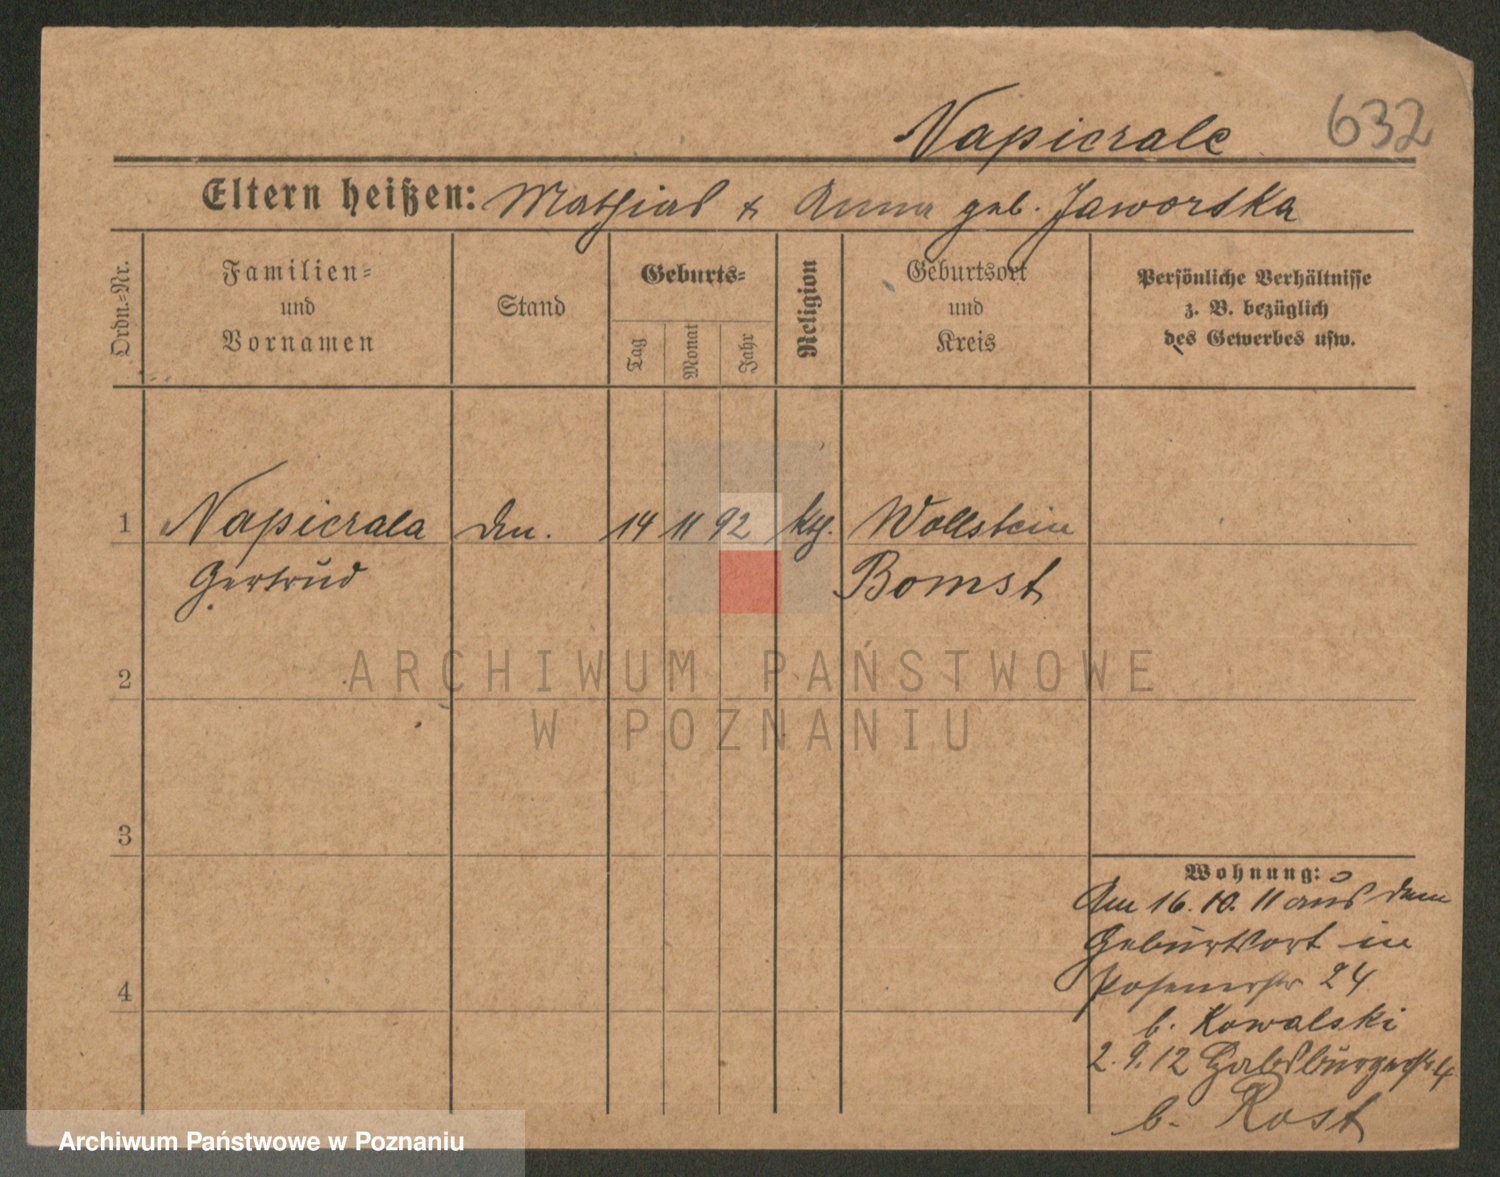 Napierala
632
Eltern heißen: Mathias & Anna geb. Jaworska
Ordn.-Nr.
Familien-
und
Vornamen
Stand
Geburts-
Tag
Monat
Jahr
Religion
Geburtsort
und
Kreis
Persönliche Verhältnisse
z. B. bezüglich
des Gewerbes usw.
1 Napierala 14 11 92 kth. Wollstein
Gertrud Bomst
2
3
4
Wohnung:
Am 16.10.11 aus dem
Geburtsort in
Posenerstr 24
b. Kowalski
2.9.12 Habsburgerstr 4
b. Rost
ARCHIWUM PAŃSTWOWE
W POZNANIU
Archiwum Państwowe w Poznaniu